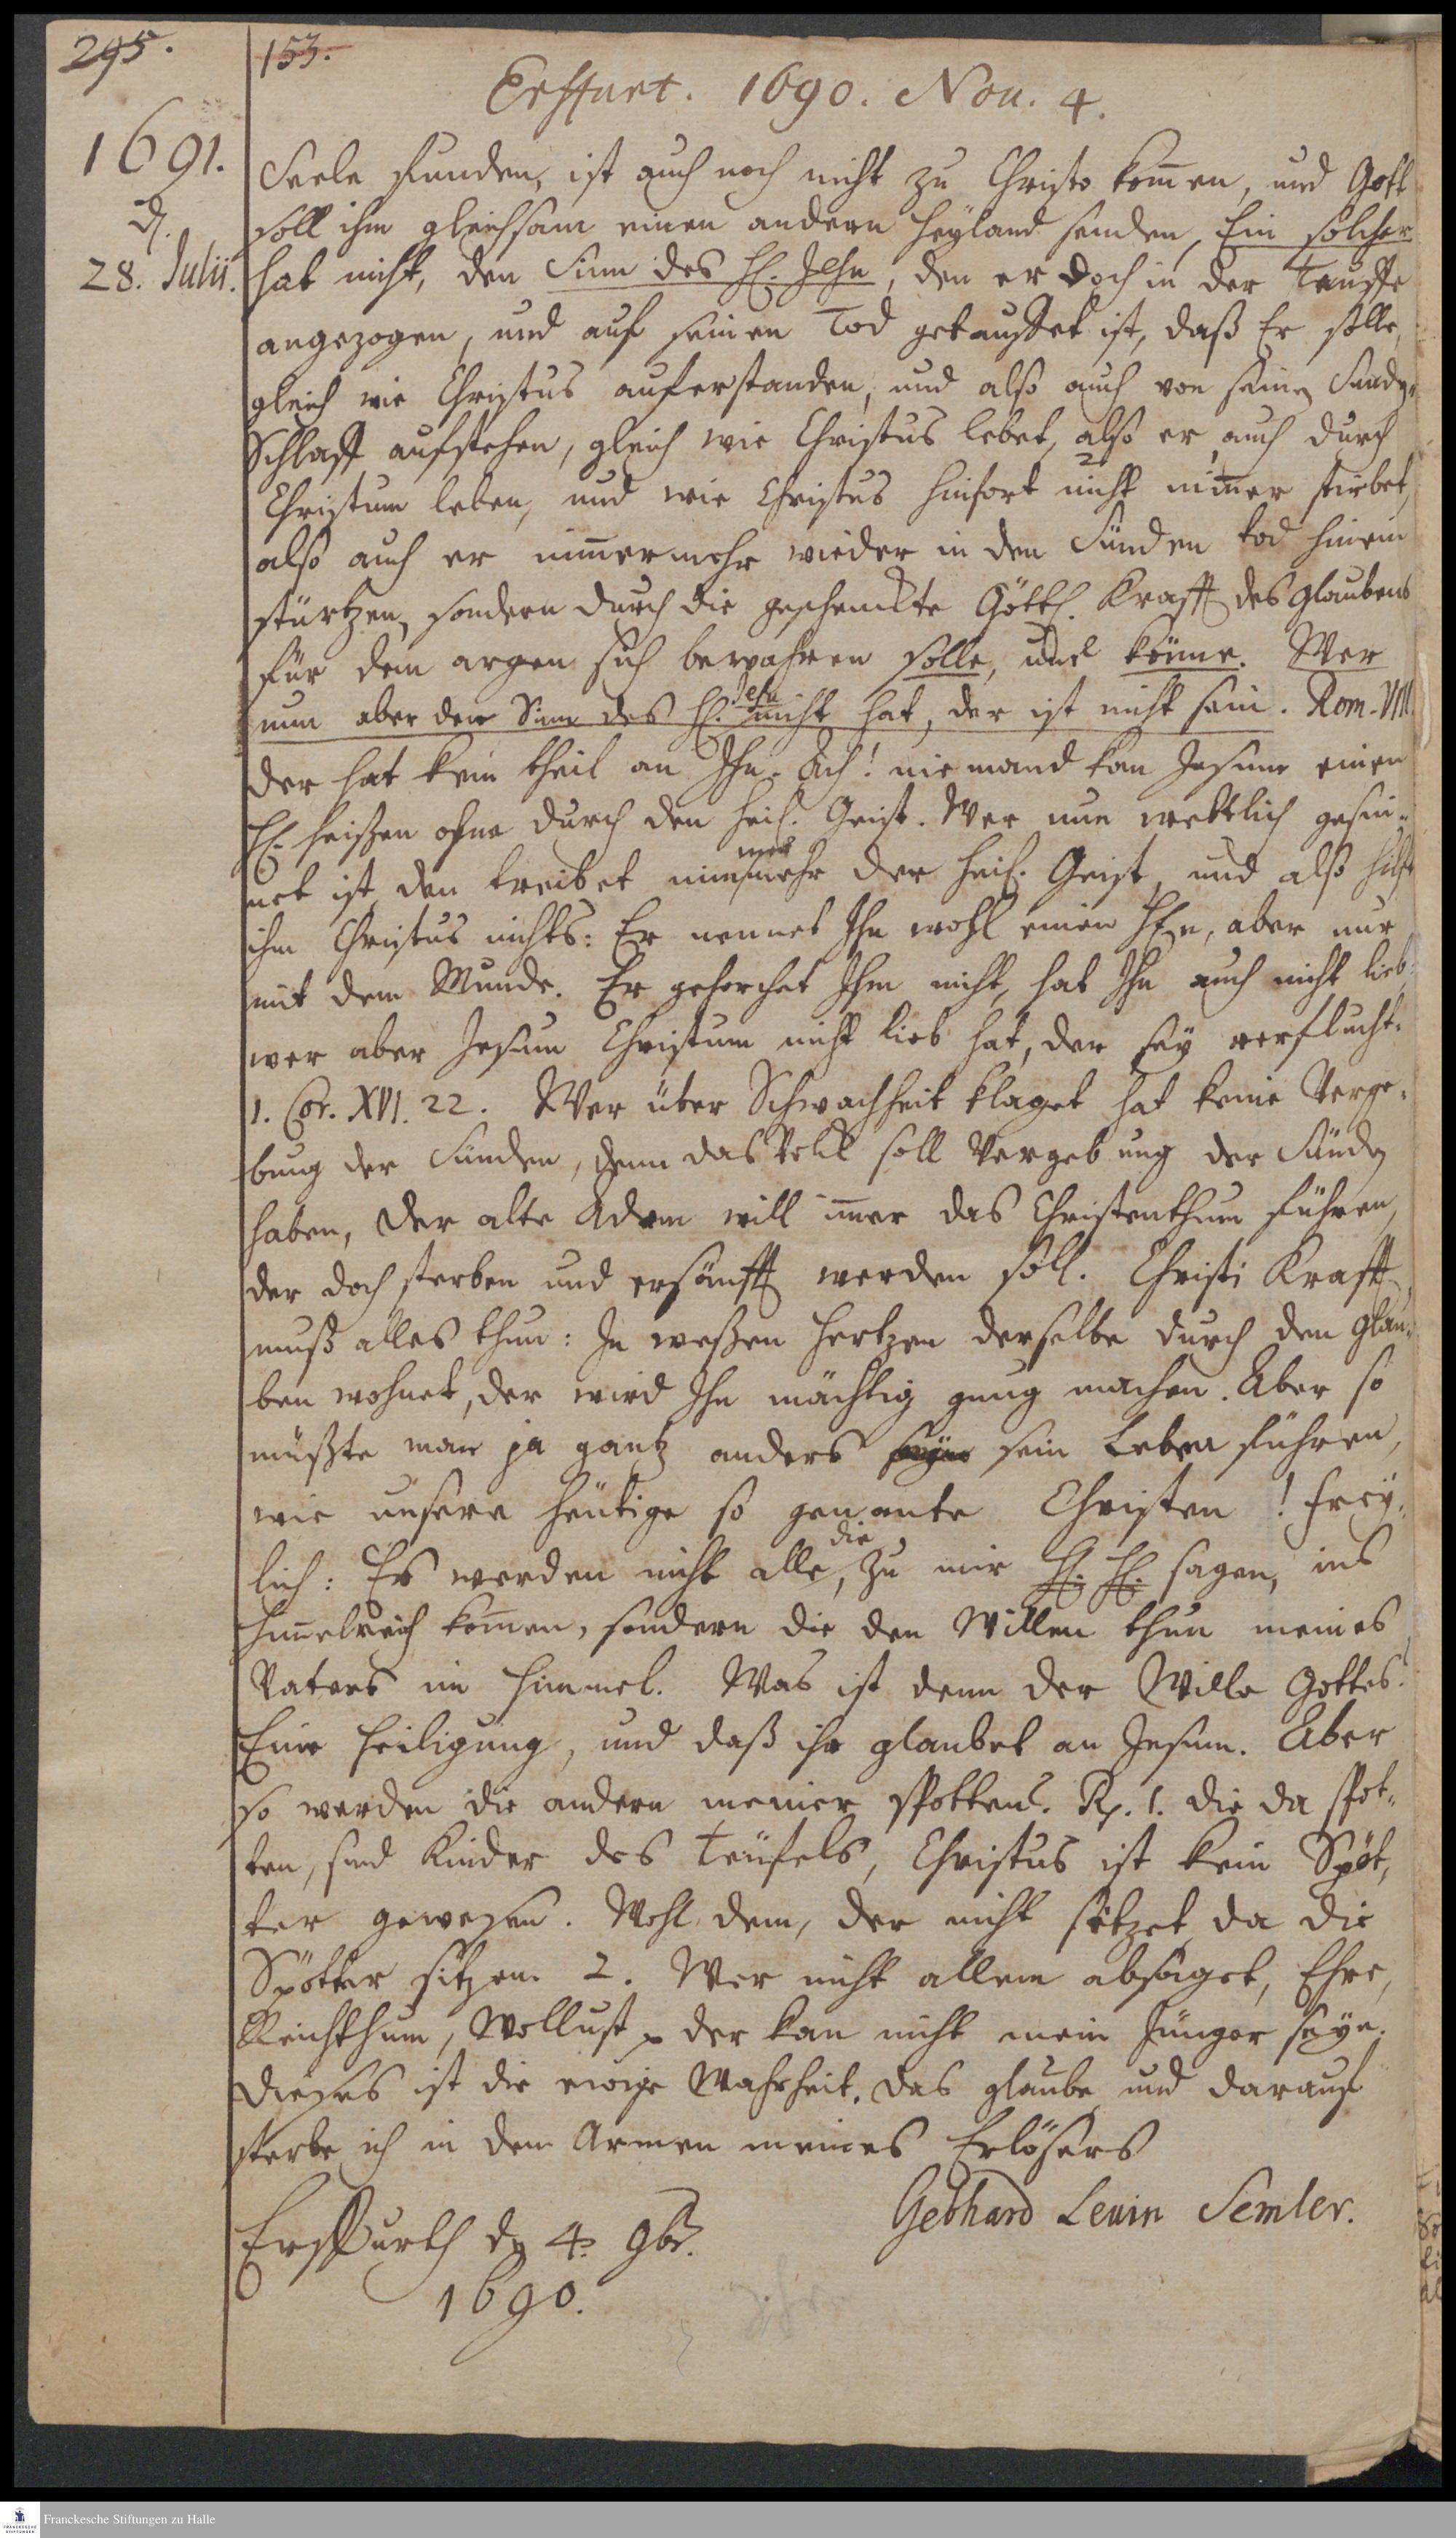 295.
153.
Erffurt. 1690. Nou. 4.
1691.
d.
28. Julii.
Seele funden, ist auch noch nicht zu Christo kom̄en, und Gott
soll ihm gleichsam einen andern Heyland senden, Ein solcher
hat nicht, den Sinn des H. Jesu, den er doch in der Tauffe
angezogen, und auf seinen Tod getauffet ist, daß Er solle,
gleich wie Christus auferstanden, und also auch von seinen Sünden
Schlaff aufstehen, gleich wie Christus lebet, also er auch durch
Christum leben, und wie Christus hinfort nicht nim̄er stirbet,
also auch er nim̄ermehr wieder in den Sünden tod hinein
stürtzen, sondern durch die geschenckte Göttl. Krafft des Glaubens
für dem argen sich bewahren solle, und könne. Wer
nun aber den Sinn des H. Jesu nicht hat, der ist nicht sein. Rom. VIII.
der hat kein theil an Ihn. Ach! niemand kan Jesum einen
H. heißen ohne durch den heil. Geist. Wer nun weltlich gesin-
net ist, den treibet nimmermehr der heil. Geist, und also hilft
ihm Christus nichts: Er nennet Ihn wohl einen HErn, aber nur
mit dem Munde. Er gehorchet Ihm nicht, hat Ihn auch nicht lieb,
wer aber Jesum Christum nicht lieb hat, der sey verflucht.
1. Cor. XVI. 22. Wer über Schwachheit klaget hat keine Verge-
bung der Sünden, denn das Volck soll Vergebung der Sünden
haben, der alte Adam will im̄er das Christenthum führen,
der doch sterben und ersäufft werden soll. Christi Krafft
muß alles thun: In weßen Hertzen derselbe durch den Glau-
ben wohnet, der wird Ihn mächtig gnug machen. Aber so
müßte man ja gantz anders sein Leben führen,
wie unsere heutige so genante Christen! Frey-
lich: Es werden nicht alle, die zu mir H. H. sagen, ins
Him̄elreich kom̄en, sondern die den Willen thun meines
Vaters im Himmel. Was ist denn der Wille Gottes?
Eure Heiligung, und daß ihr glaubet an Jesum. Aber
so werden die andern meiner spotten? Rp. 1. die da spot-
ten, sind Kinder des Teufels, Christus ist kein Spöt-
ter gewesen. Wohl dem, der nicht sitzet da die
Spötter sitzen. 2. Wer nicht allem absaget, Ehre,
Reichthum, Wollust der kan nicht mein Jünger seyn.
Dieses ist die ewige Wahrheit, das glaube und darauf
sterbe ich in den Armen meines Erlösers
Gebhard Leuin Semler.
Erffurth den 4. 9br.
1690.
Franckesche Stiftungen zu Halle